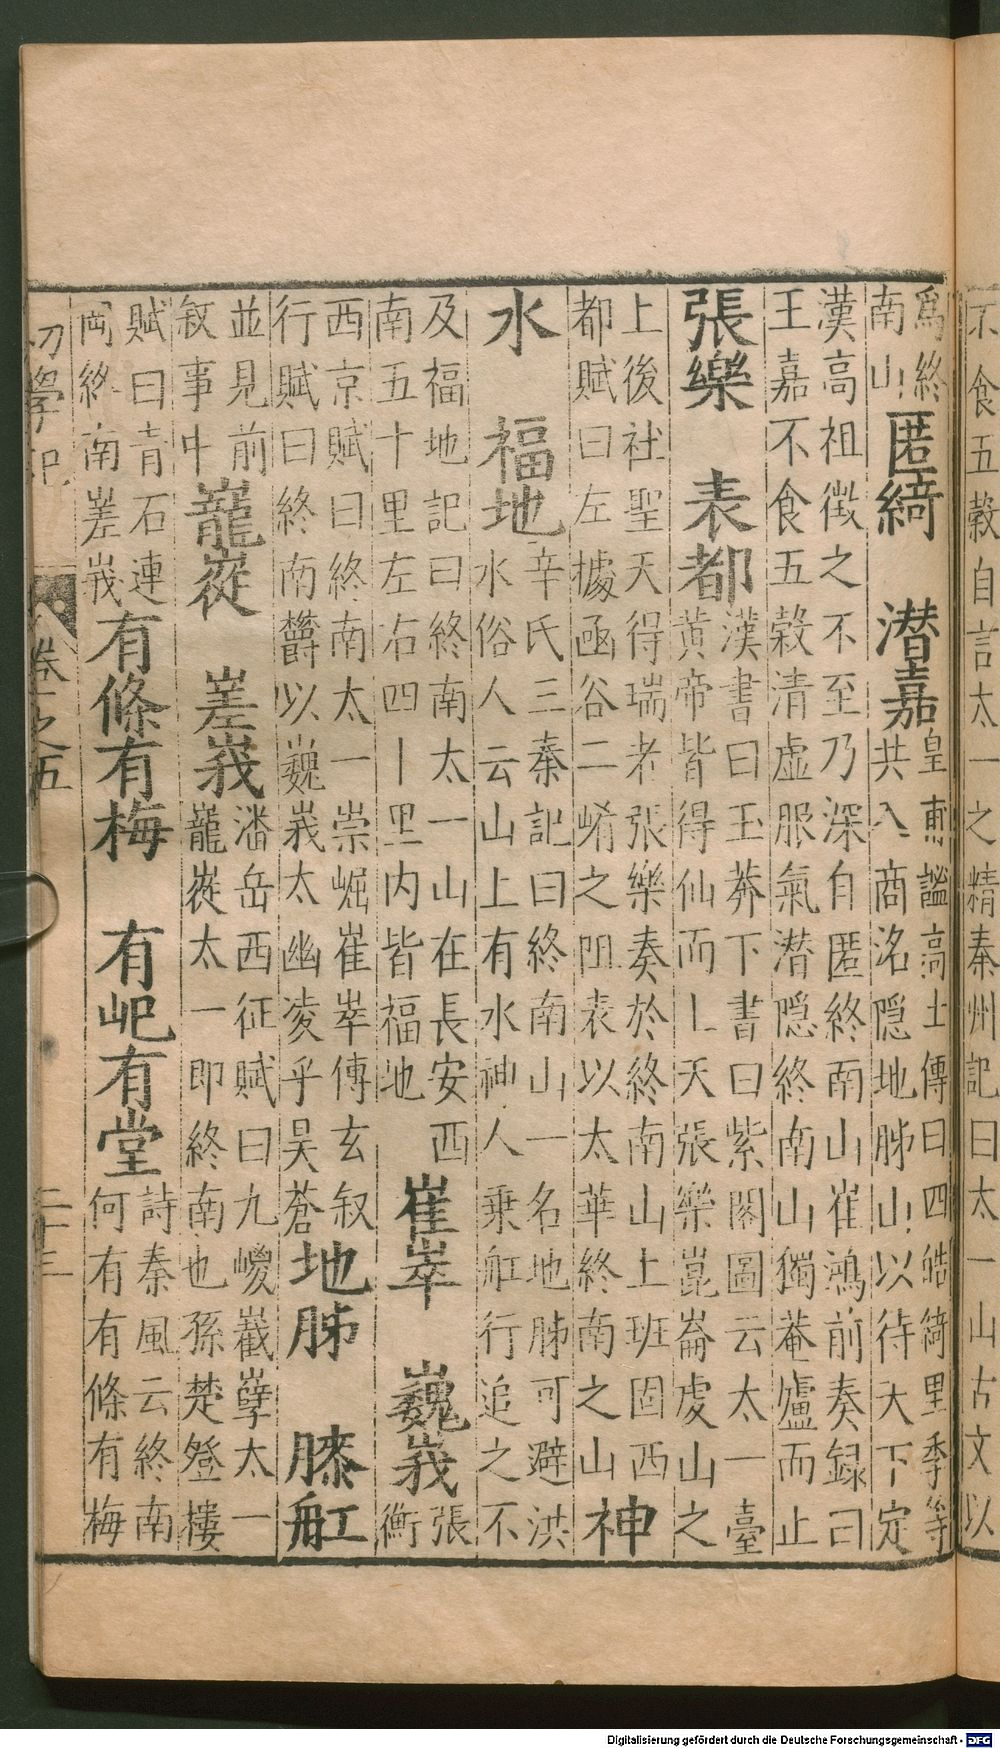 不食五穀自言太一之精秦州記曰太一山古文以
為終
南山
匿綺　潛嘉
皇甫謐高士傳曰四皓綺里季等
共入商洛隱地肺山以待天下定
漢高祖徵之不至乃深自匿終南山崔鴻前奏録曰
王嘉不食五穀清虛服氣潛隱終南山獨菴廬而止
張樂　表都
漢書曰王莽下書曰紫閣圖云太一臺
黃帝皆得仙而上天張樂崑崙虔山之
上後社聖天得瑞者張樂奏於終南山上班固西
都賦曰左據函谷二崤之阻表以太華終南之山
神
水　福地
辛氏三秦記曰終南山一名地肺可避洪
水俗人云山上有水神人乘舡行追之不
及福地記曰終南太一山在長安西
南五十里左右四十里内皆福地
崔崒　巍峩
張
衡
西京賦曰終南太一崇崛崔崒傳玄叙
行賦曰終南欝以巍峩太幽凌乎昊蒼
地肺　膝舡
並見前
叙事中
巃嵷　嵳峩
潘岳西征賦曰九嵕巀孽太一
巃嵷太一即終南也孫楚登樓
賦曰青石連
岡終南嵳峩
有條有梅　有屺有堂
詩秦風云終南
何有有條有梅
初學記　卷之五　二十三
Digitalisierung gefördert durch die Deutsche Forschungsgemeinschaft - DFG